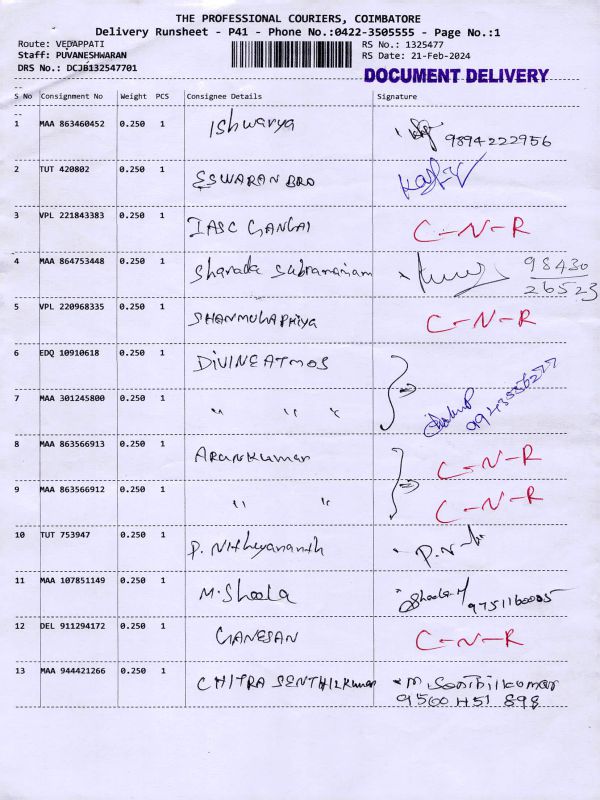 THE PROFESSIONAL COURIERS, COIMBATORE
Delivery Runsheet - P41 - Phone No.:0422-3505555 - Page No.:1
Route: VEDAPPATI RS No.: 1325477
Staff: PUVANESHWARAN RS Date: 21-Feb-2024
DRS No.: DCJB132547701
DOCUMENT DELIVERY
S No Consignment No Weight PCS Consignee Details Signature
1 MAA 863460452 0.250 1 Ishwarya 9894222956
2 TUT 420802 0.250 1 ESWARAN BRO
3 VPL 221843383 0.250 1 IASC GANGAI C-N-R
4 MAA 864753448 0.250 1 Sharada Subramaniam 98430
26523
5 VPL 220968335 0.250 1 SHANMUGAPRIYA C-N-R
6 EDQ 10910618 0.250 1 DIVINEATMOS
7 MAA 301245800 0.250 1 " " "
8 MAA 863566913 0.250 1 Arunkumar C-N-R
9 MAA 863566912 0.250 1 " " C-N-R
10 TUT 753947 0.250 1 P. Nithyananth
11 MAA 107851149 0.250 1 M. Sheela
12 DEL 911294172 0.250 1 GANESAN C-N-R
13 MAA 944421266 0.250 1 CHITRA SENTHILKumar M. Senthilkumar
9500H51 898